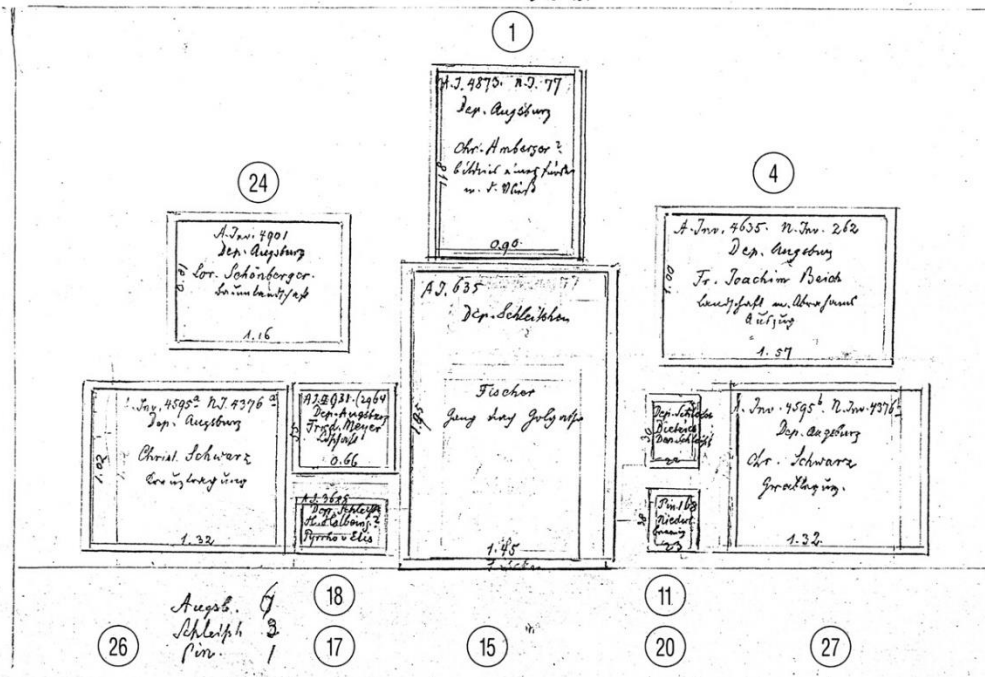 1
A.I. 4873. N.I. 77
Dep. Augsburg
Chr. Amberger?
Bildnis eines
m. d. Vließ
118
0.90
24
A. Inv. 4901
Dep. Augsburg
Lor. Schönberger.
Baumlandschaft
1.16
4
A. Inv. 4635. N. Inv. 262
Dep. Augsburg
Fr. Joachim Beich
Landschaft m. Abrahams
Auszug
1.00
1.57
A.I. 635
Dep. Schleißheim
Fischer
Gang nach Golgatha
1.95
1.45
Inv. 4595a N.I. 4376a
Dep. Augsburg
Christ. Schwarz
Kreuztragung
1.02
1.32
Dep. Augsburg
Fried. Meyer
0.66
A.I. 3685
Dep. Schleißh
H. Holbein?
Pyrrho v Elis
Dep. Schleißh
30
22
Pin. 168
Niederl
23
A. Inv. 4595b N. Inv. 4376b
Dep. Augsburg
Chr. Schwarz
Grablegung.
1.32
Augsb. 7
Schleißh 3
Pin. 1
18
11
26
17
15
20
27